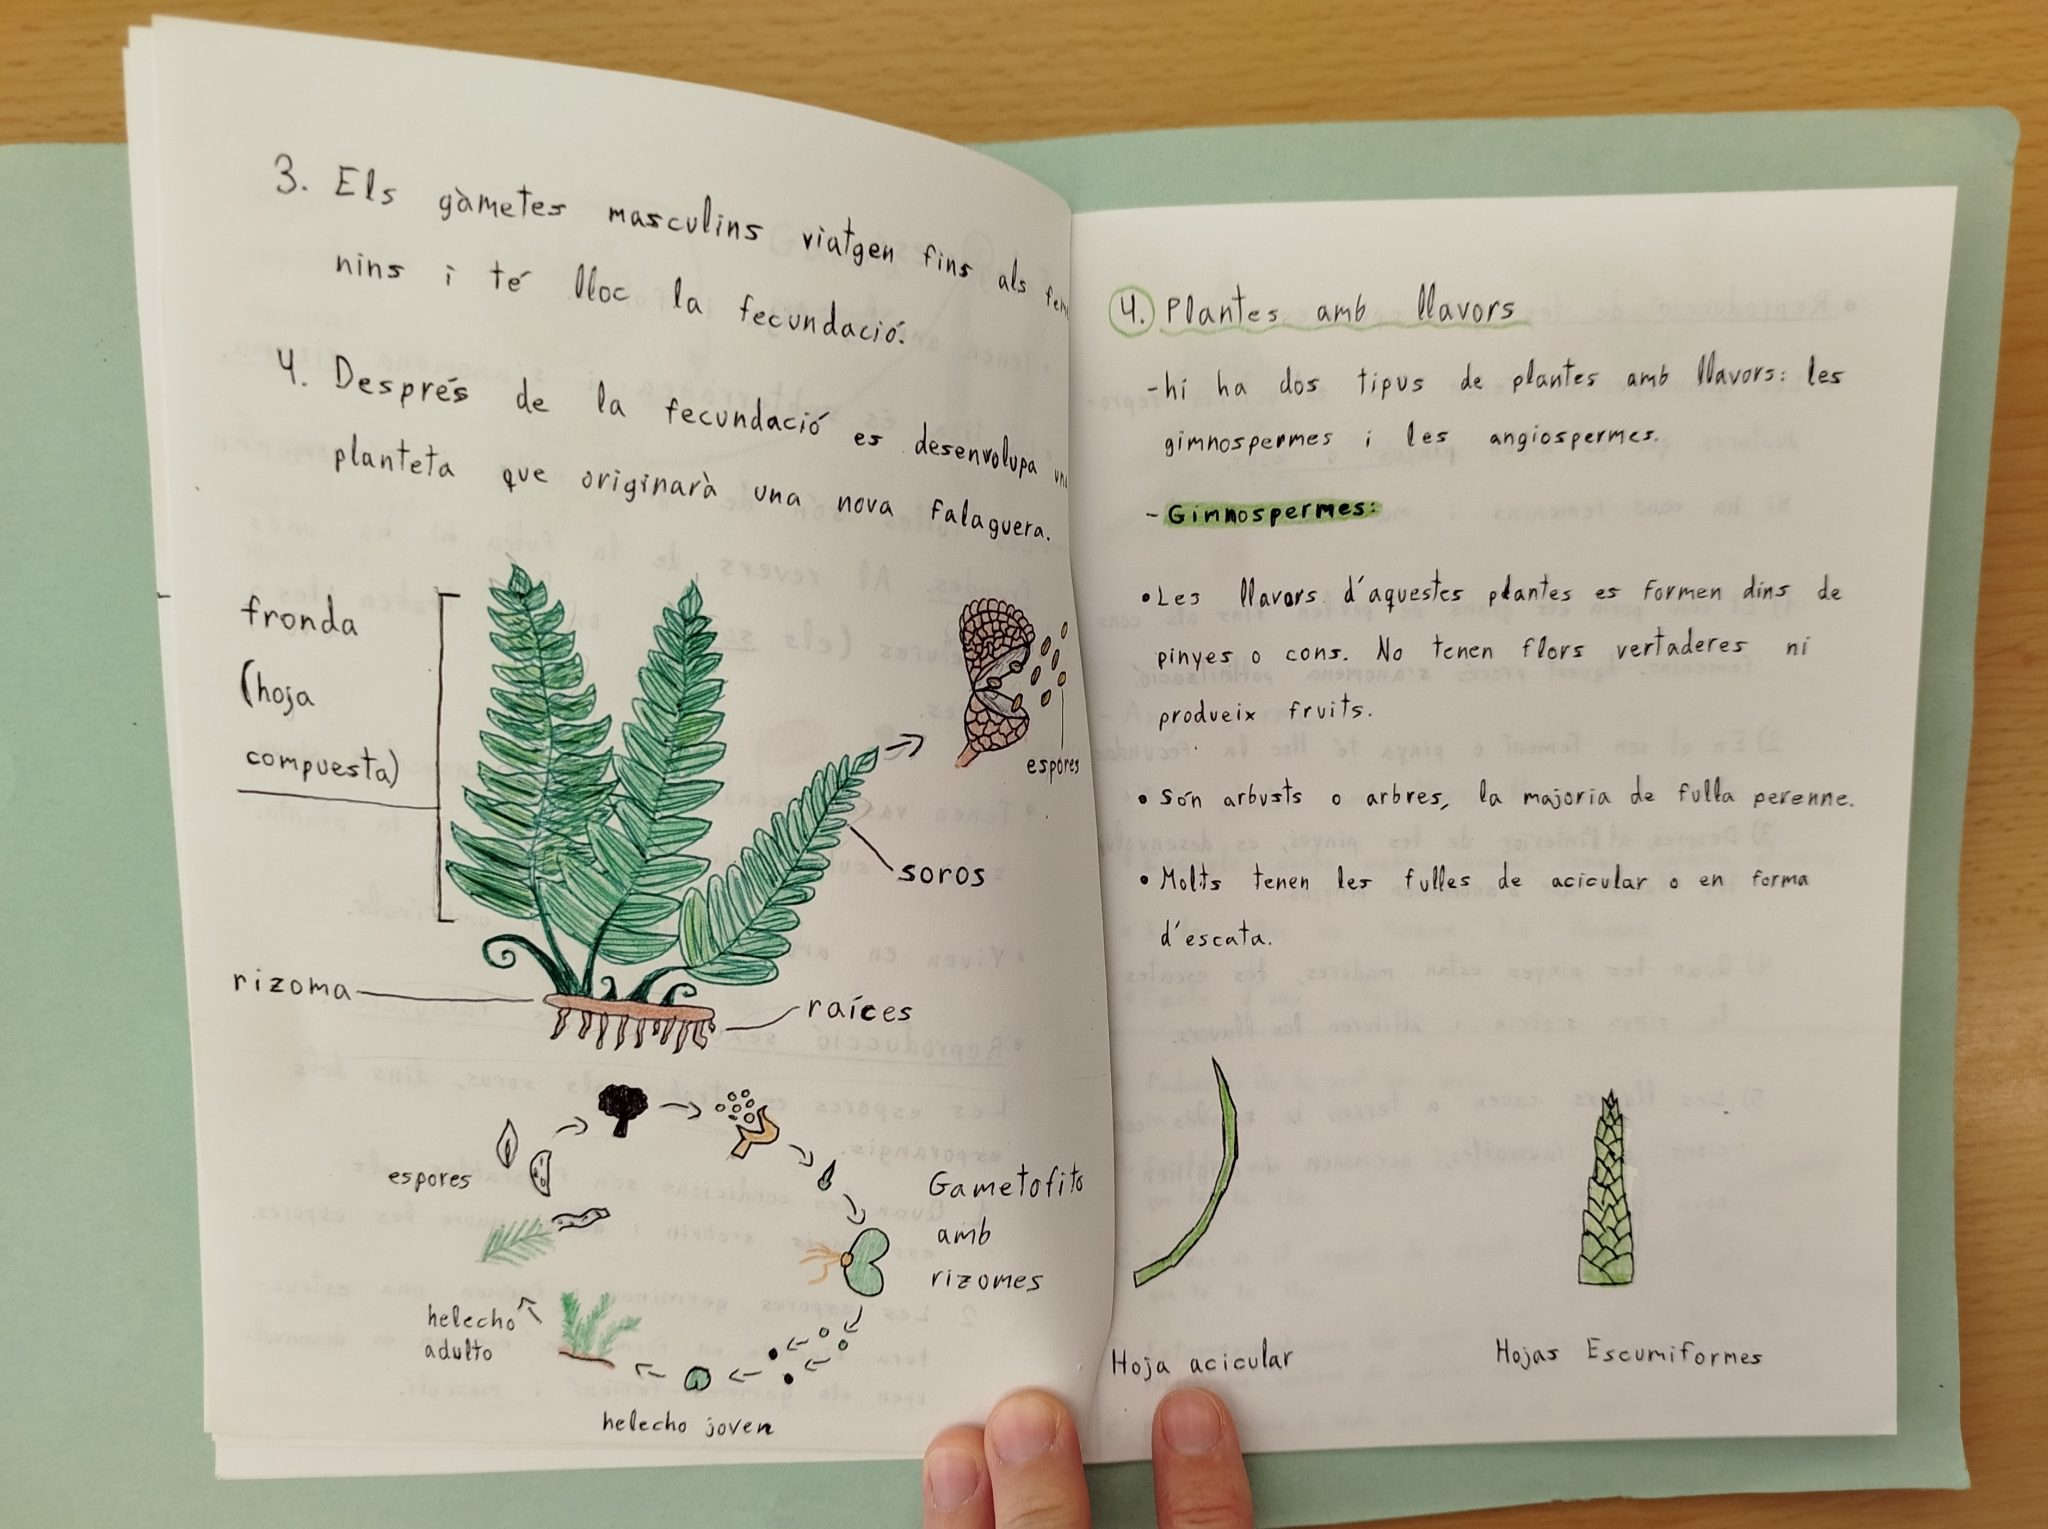 3. Els gàmetes masculins viatgen fins als
nins i té lloc la fecundació.
4. Després de la fecundació es desenvolupa
planteta que originarà una nova falaguera.
fronda
(hoja
compuesta)
espores
soros
rizoma
raíces
espores
Gametofito
amb
rizomes
helecho
adulto
helecho joven
4. Plantes amb llavors
-hi ha dos tipus de plantes amb llavors: les
gimnospermes i les angiospermes.
- Gimnospermes:
• Les llavors d'aquestes plantes es formen dins de
pinyes o cons. No tenen flors vertaderes ni
produeix fruits.
• Són arbusts o arbres, la majoria de fulla perenne.
• Molts tenen les fulles de acicular o en forma
d'escata.
Hoja acicular
Hojas Escumiformes